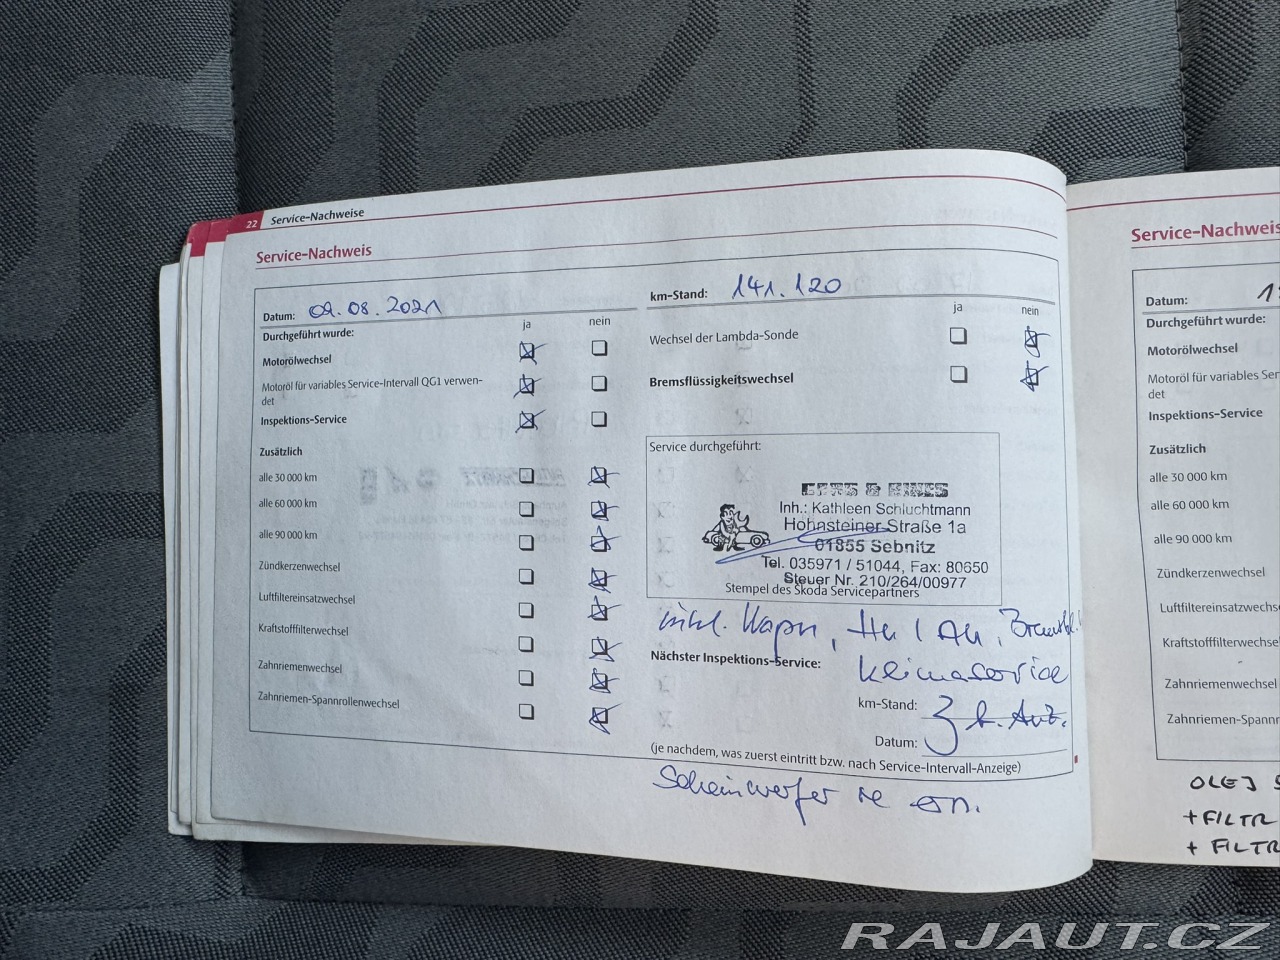 22 Service-Nachweise
Service-Nachweis
Datum: 09.08.2021
km-Stand: 141.120
Durchgeführt wurde:
ja nein
ja nein
Motorölwechsel
Motoröl für variables Service-Intervall QG1 verwen-
det
Inspektions-Service
Zusätzlich
alle 30 000 km
alle 60 000 km
alle 90 000 km
Zündkerzenwechsel
Luftfiltereinsatzwechsel
Kraftstofffilterwechsel
Zahnriemenwechsel
Zahnriemen-Spannrollenwechsel
Wechsel der Lambda-Sonde
Bremsflüssigkeitswechsel
Service durchgeführt:
Inh.: Kathleen Schluchtmann
Hohnsteiner Straße 1a
01855 Sebnitz
Tel. 035971 / 51044, Fax: 80650
Steuer Nr. 210/264/00977
Stempel des Škoda Servicepartners
Nächster Inspektions-Service:
Klimaservice
km-Stand:
Datum:
(je nachdem, was zuerst eintritt bzw. nach Service-Intervall-Anzeige)
Scheinwerfer
Service-Nachweis
Datum:
Durchgeführt wurde:
Motorölwechsel
Motoröl für variables Ser
det
Inspektions-Service
Zusätzlich
alle 30 000 km
alle 60 000 km
alle 90 000 km
Zündkerzenwechsel
Luftfiltereinsatzwechs
Kraftstofffilterwechse
Zahnriemenwechsel
Zahnriemen-Spannr
OLEJ
+FILTR
+ FILTR
RAJAUT.CZ